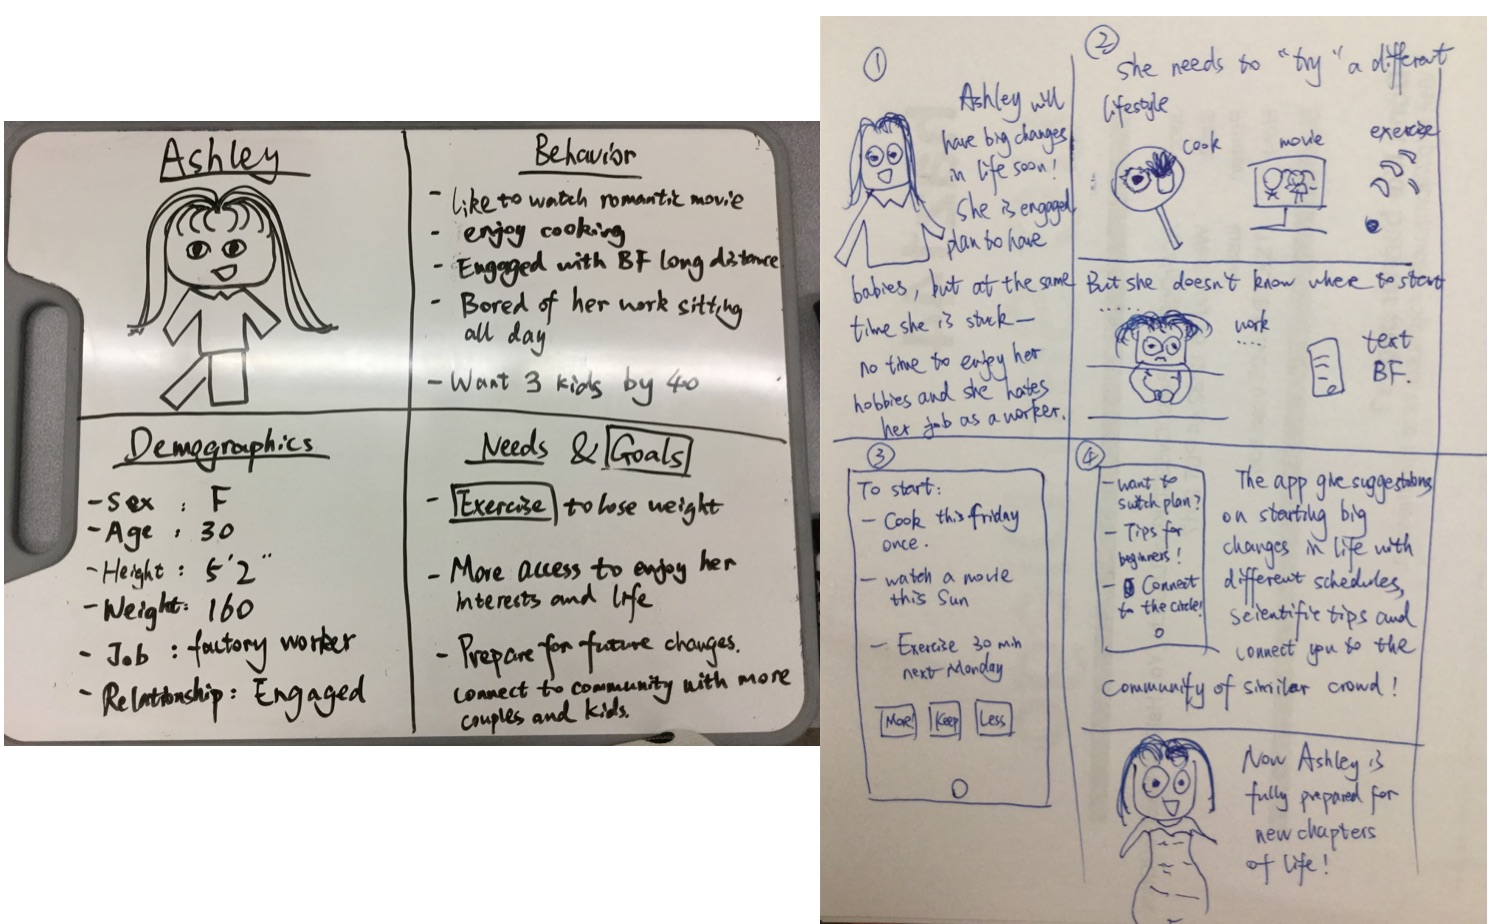 Ashley
Behavior
- like to watch romantic movie
- enjoy cooking
- Engaged with BF long distance
- Bored of her work sitting
all day
- Want 3 kids by 40
Demographics
- Sex : F
- Age : 30
- Height : 5'2"
- Weight: 160
- Job : factory worker
- Relationship: Engaged
Needs & Goals
- Exercise to lose weight
- More access to enjoy her
interests and life
- Prepare for future changes.
connect to community with more
couples and kids.
①
Ashley will
have big changes
in life soon!
She is engaged
plan to have
babies, but at the same
time she is stuck—
no time to enjoy her
hobbies and she hates
her job as a worker.
②
She needs to "try" a different
lifestyle
cook
movie
exercise
But she doesn't know where to start
......
work
....
text
BF.
③
To start:
- Cook this friday
once.
- watch a movie
this Sun
- Exercise 30 min
next Monday
More!
Keep
Less
④
- want to
switch plan?
- Tips for
beginners!
- Connect
to the circle!
The app give suggestions
on starting big
changes in life with
different schedules,
scientific tips and
connect you to the
community of similar crowd!
Now Ashley is
fully prepared for
new chapters
of life!